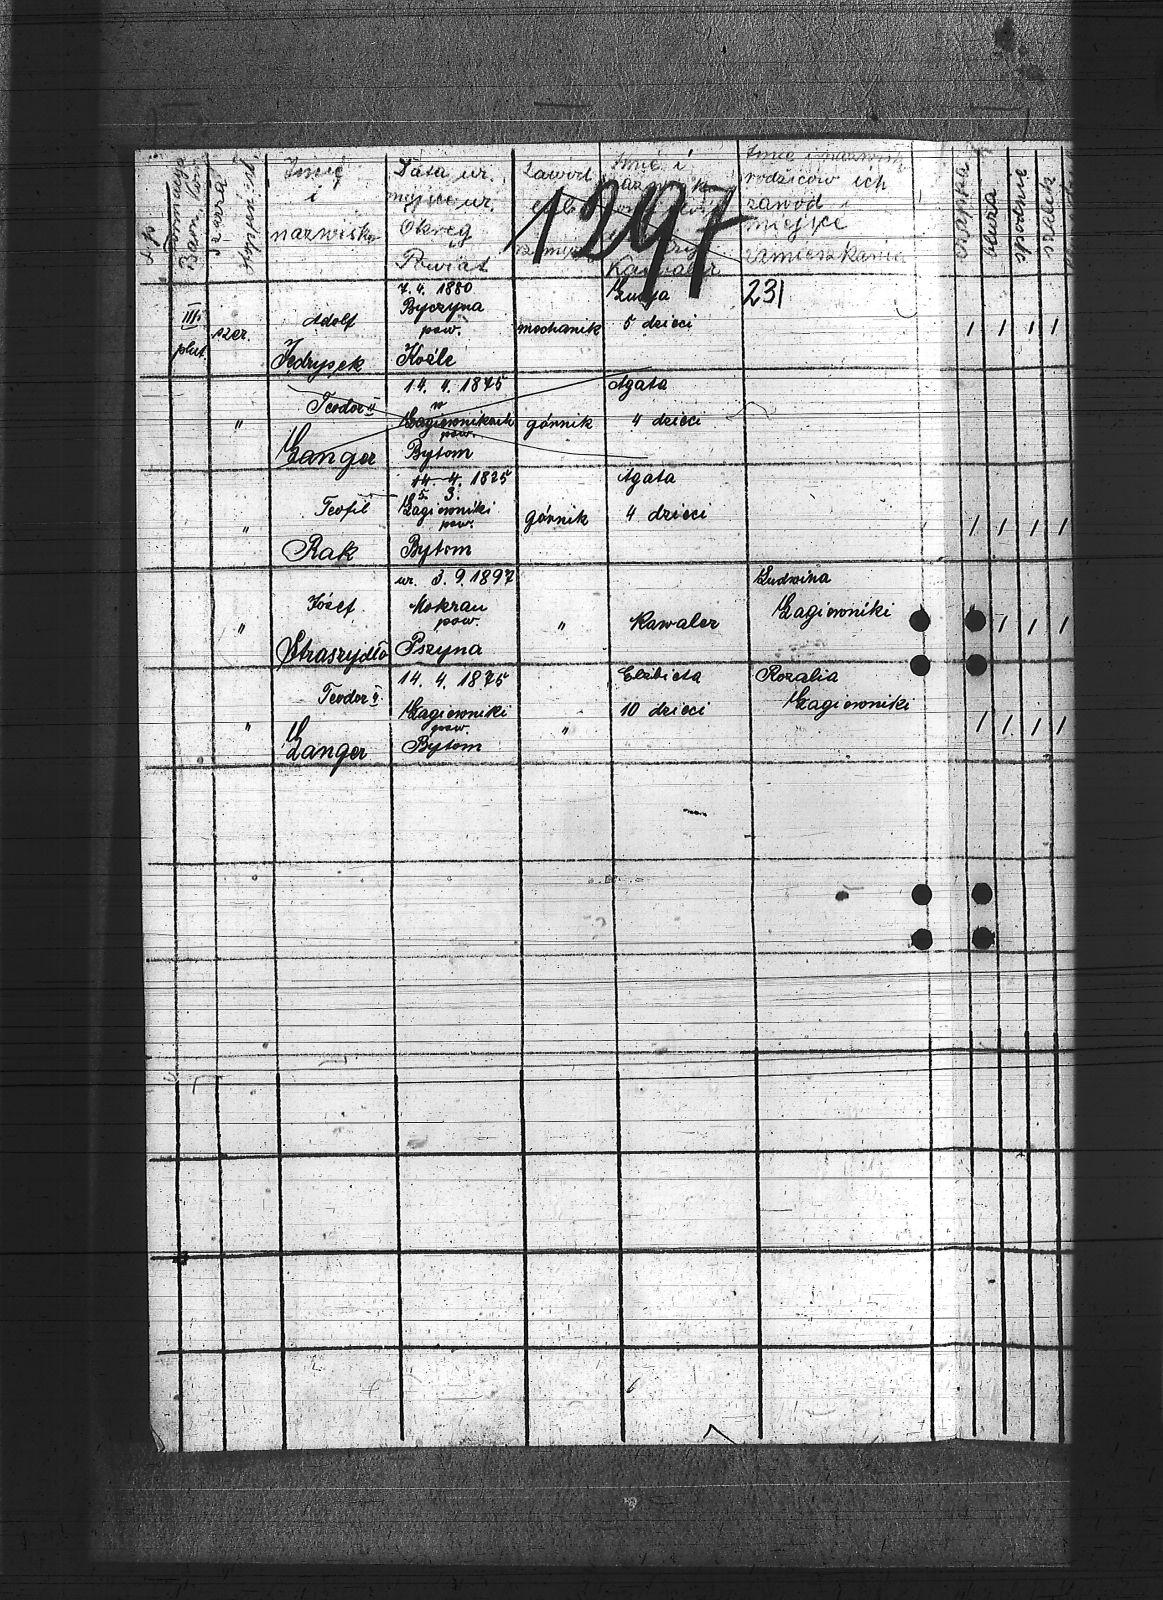 Imię
i
nazwisko
Data ur.
miejsce ur.
Okręg
i
Powiat
Zawód
Imię i
Kawaler
Imię i nazwisko
rodziców ich
zawód i
miejsce
zamieszkania
czapka
bluza
spodnie
1297
231
IIII
plut.
szer.
Adolf
Jędrysek
7. 4. 1880
Byczyna
pow.
Koźle
mechanik
5 dzieci
1 1 1 1
"
Teodor II
Langer
14. 4. 1875
w
Łagiewnikach
pow.
Bytom
górnik
Agata
4 dzieci
"
Teofil
Rak
14. 4. 1875
5. 3.
Łagiewniki
pow.
Bytom
górnik
Agata
4 dzieci
1 1 1 1
"
Józef
Straszydło
ur. 3. 9. 1897
Mokrau
pow.
Pszyna
"
Kawaler
Ludwina
Łagiewniki
1 1 1
"
Teodor II
Langer
14. 4. 1875
Łagiewniki
pow.
Bytom
"
Elżbieta
10 dzieci
Rozalia
Łagiewniki
1 1 1 1